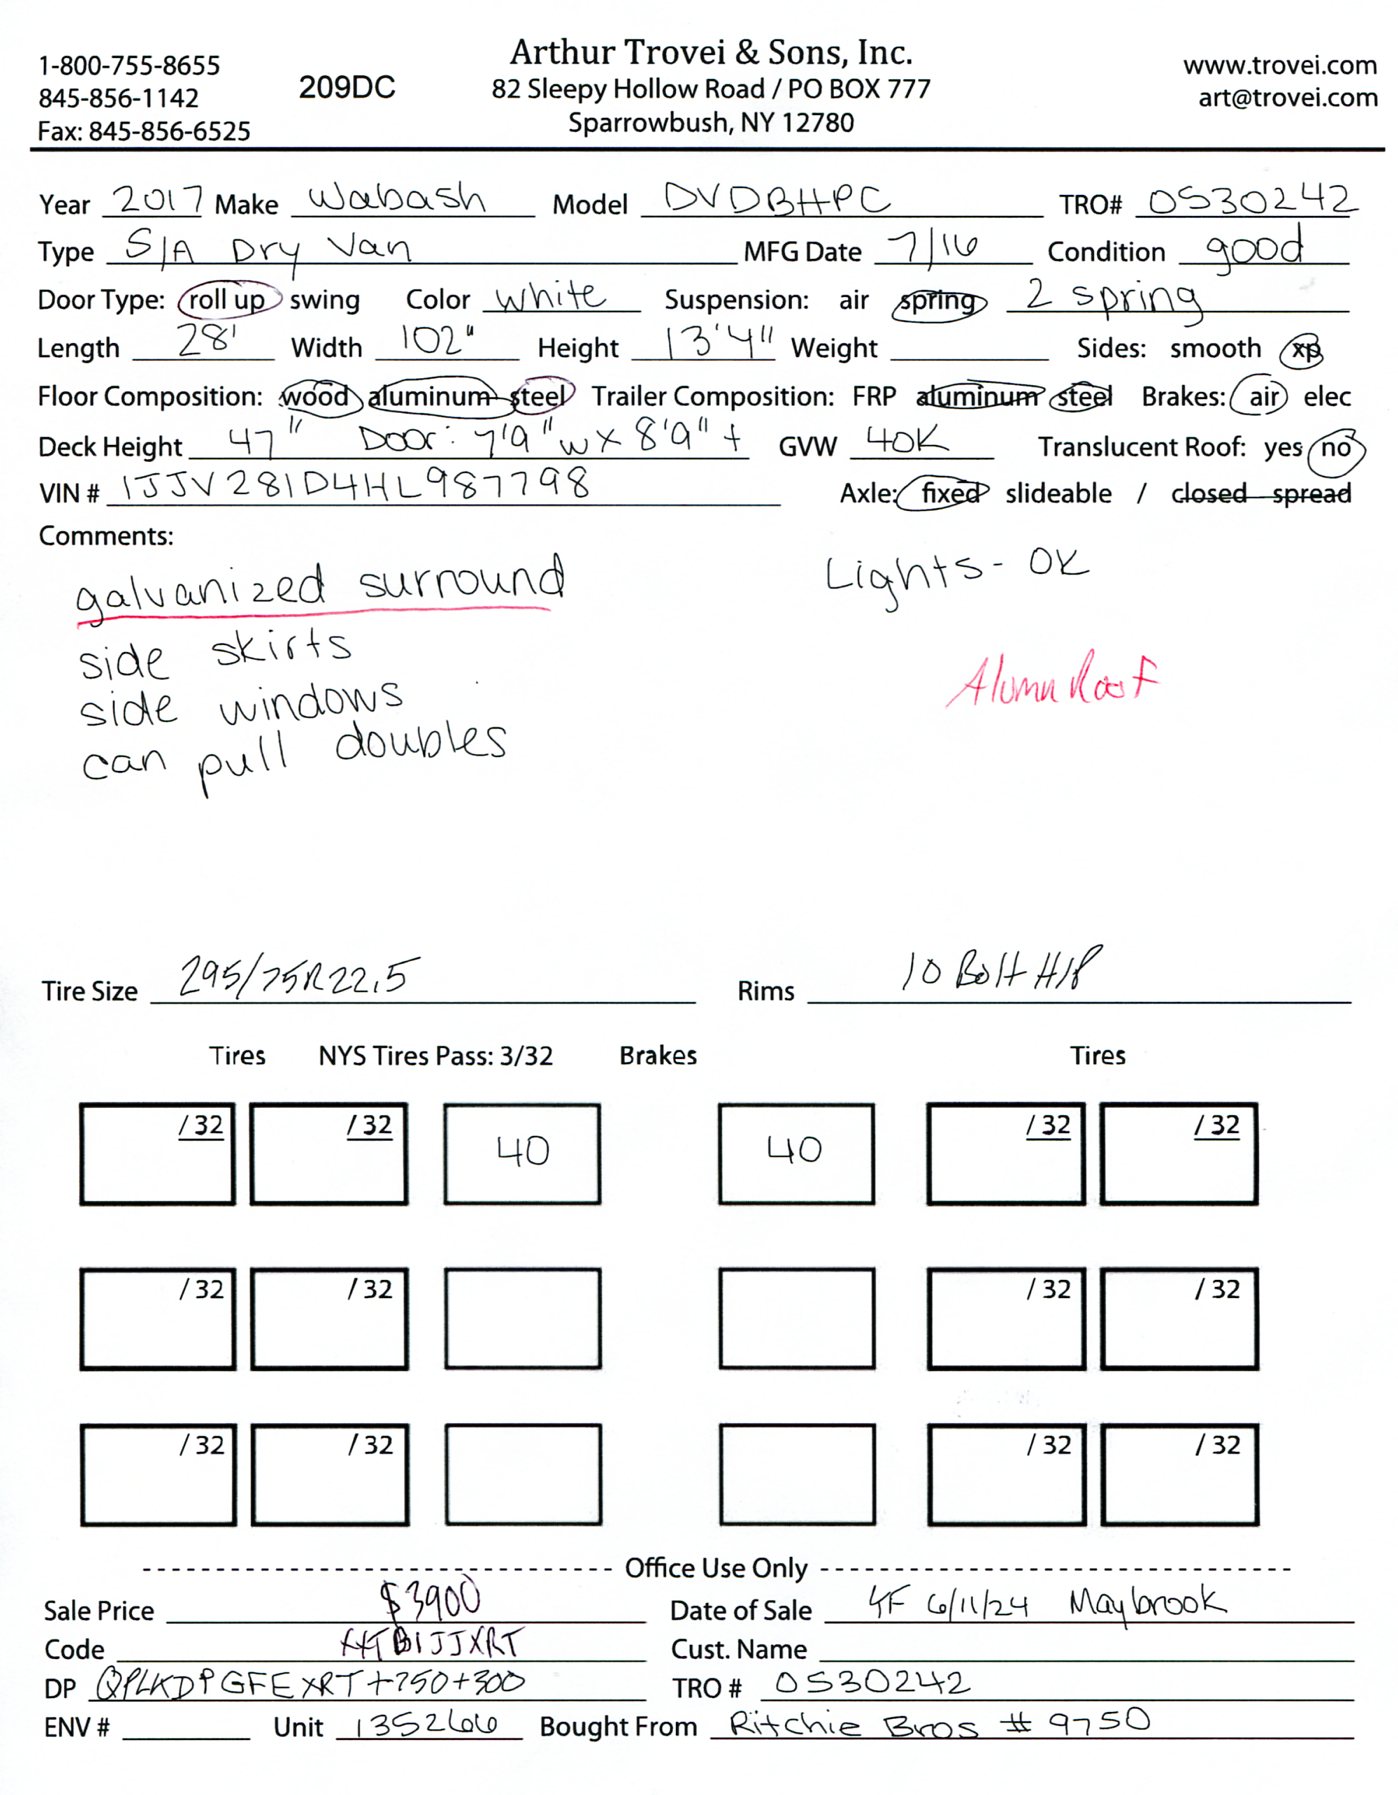 Arthur Trovei & Sons, Inc.
1-800-755-8655
845-856-1142
Fax: 845-856-6525
209DC
82 Sleepy Hollow Road / PO BOX 777
Sparrowbush, NY 12780
www.trovei.com
art@trovei.com
Year 2017 Make Wabash Model DVDBHPC TRO# 0S30242
Type S/A Dry Van MFG Date 7/16 Condition good
Door Type: roll up swing Color white Suspension: air spring 2 spring
Length 28' Width 102" Height 13'4" Weight Sides: smooth xp
Floor Composition: wood aluminum steel Trailer Composition: FRP aluminum steel Brakes: air elec
Deck Height 47" Door: 7'9"w x 8'9"+ GVW 40K Translucent Roof: yes no
VIN # 1JJV281D4HL987798 Axle: fixed slideable / closed spread
Comments:
galvanized surround Lights- OK
side skirts
side windows
can pull doubles
Alumn Roof
Tire Size 295/75R22.5 Rims 10 Bolt H/P
Tires NYS Tires Pass: 3/32 Brakes Tires
/32 /32 40 40 /32 /32
/32 /32 /32 /32
/32 /32 /32 /32
Office Use Only
Sale Price $3900 Date of Sale YF 6/11/24 Maybrook
Code Cust. Name
DP QPLKDPGFEXRT+750+300 TRO # 0S30242
ENV # Unit 135266 Bought From Ritchie Bros # 9750